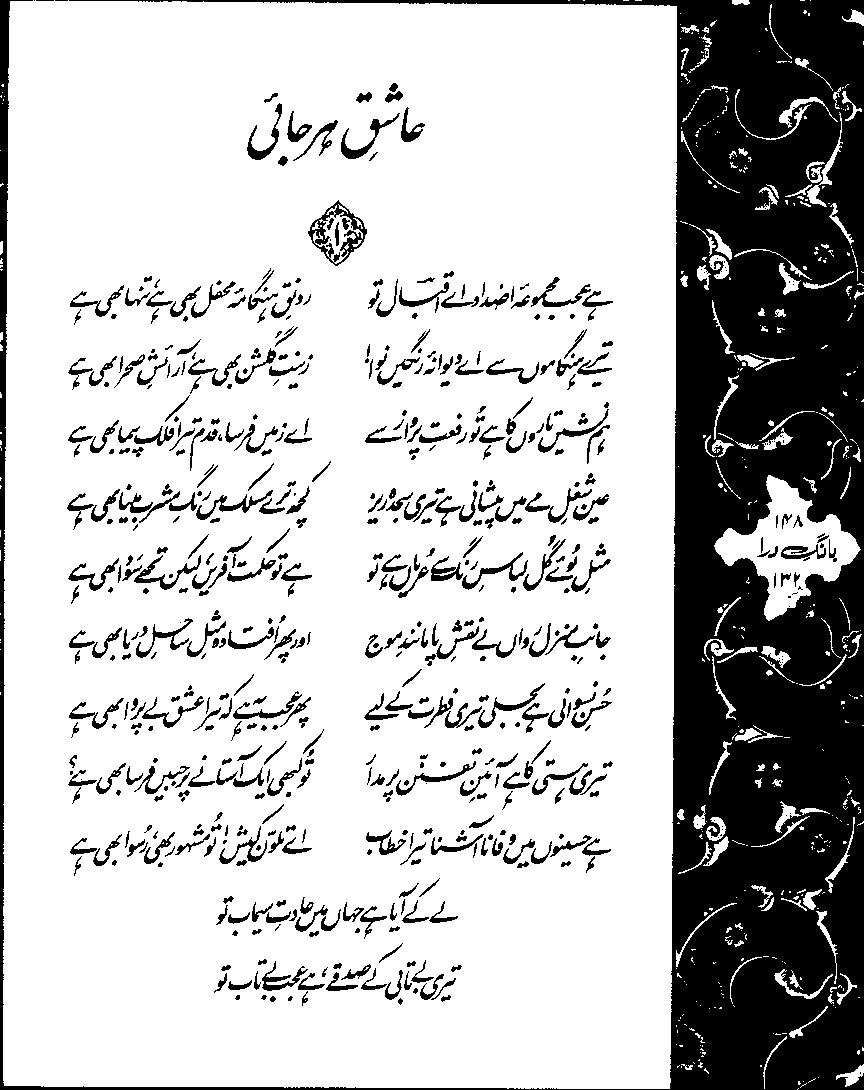 عاشقِ ہرجائی
۱
ہے عجب مجموعۂ اضداد اے اقبالؔ تو رونقِ ہنگامۂ محفل بھی ہے، تنہا بھی ہے
تیرے ہنگاموں سے اے دیوانۂ رنگیں نوا! زینتِ گلشن بھی ہے، آرائشِ صحرا بھی ہے
ہم نشیں تاروں کا ہے تُو رفعتِ پرواز سے اے زمیں فرسا، قدم تیرا فلک پیما بھی ہے
عین شغلِ مے میں پیشانی ہے تیری سجدہ ریز کچھ ترے مسلک میں رنگِ مشربِ مینا بھی ہے
مثلِ بُوئے گُل لباسِ رنگ سے عُریاں ہے تو ہے تو حکمت آفریں، لیکن تجھے سَودا بھی ہے
جانبِ منزل رواں بے نقشِ پا مانندِ موج اور پھر اُفتادہ مثلِ ساحلِ دریا بھی ہے
حُسنِ نسوانی ہے بجلی تیری فطرت کے لیے پھر عجب یہ ہے کہ تیرا عشق بے پروا بھی ہے
تیری ہستی کا ہے آئینِ تفنّن پر مدار تُو کبھی ایک آستانے پر جبیں فرسا بھی ہے؟
ہے حسینوں میں وفا ناآشنا تیرا خطاب اے تلوّن کیش! تُو مشہور بھی، رُسوا بھی ہے
لے کے آیا ہے جہاں میں عادتِ سیماب تو
تیری بےتابی کے صدقے، ہے عجب بےتاب تو
۱۴۸
بانگِ درا
۱۳۲